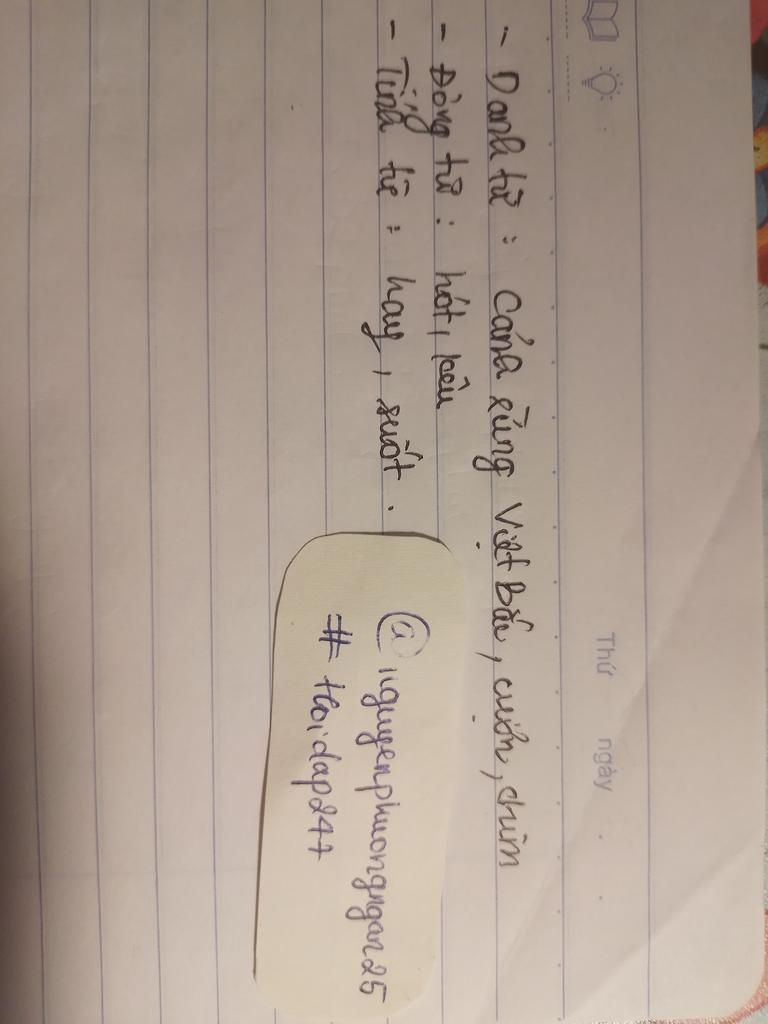 Thứ ngày
- Danh từ : Cảnh rừng Việt Bắc, vượn, chim
- Động từ : hót, kêu
- Tính từ : hay, suốt.
@nguyenphuongngan25
#Hoidap247